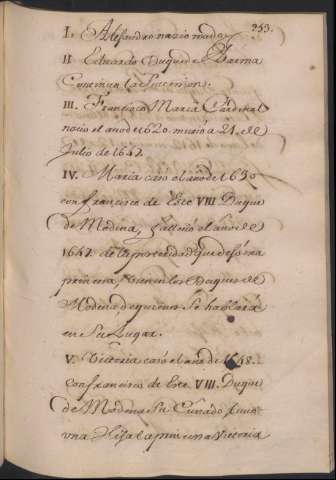 253.
I. Alejandro nacio mudo.
II Eduardo Duque de Parma
Continuo la Succesion.
III. Francisco Maria Cardenal
nacio el año de 1620. murió a 21. de
Julio de 1647.
IV. Maria casó el año de 1630
con francisco de Este VIII Duque
de Modena, falleció el año de
1647. de la posteridad que de esta
primera, vienen los Duques de
Modena de quienes Se hablará
en Su Lugar.
V. Victoria casó el año de 1648.
Con francisco de Este VIII. Duque
de Modena Su Cuñado tuvo
vna Hija la princesa Victoria